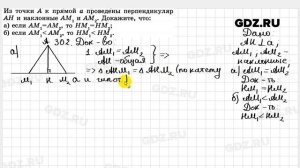 Из точки A к прямой a проведены перпендикуляр
AH и наклонные AM₁ и AM₂. Докажите, что:
а) если AM₁=AM₂, то HM₁=HM₂;
б) если AM₁<AM₂, то HM₁<HM₂.
GDZ.RU
302. Док-во
а)
A
1 AM₁=AM₂
AH - общая
=>
=> ΔAHM₁ = ΔAHM₂ (по катету
и
M₁ H M₂ a
Дано
AH ⊥ a
AM₁, AM₂ -
наклонные
а) AM₁=AM₂
Док-ть
HM₁=HM₂
б) AM₁<AM₂
Док-ть
HM₁<HM₂
GDZ.RU